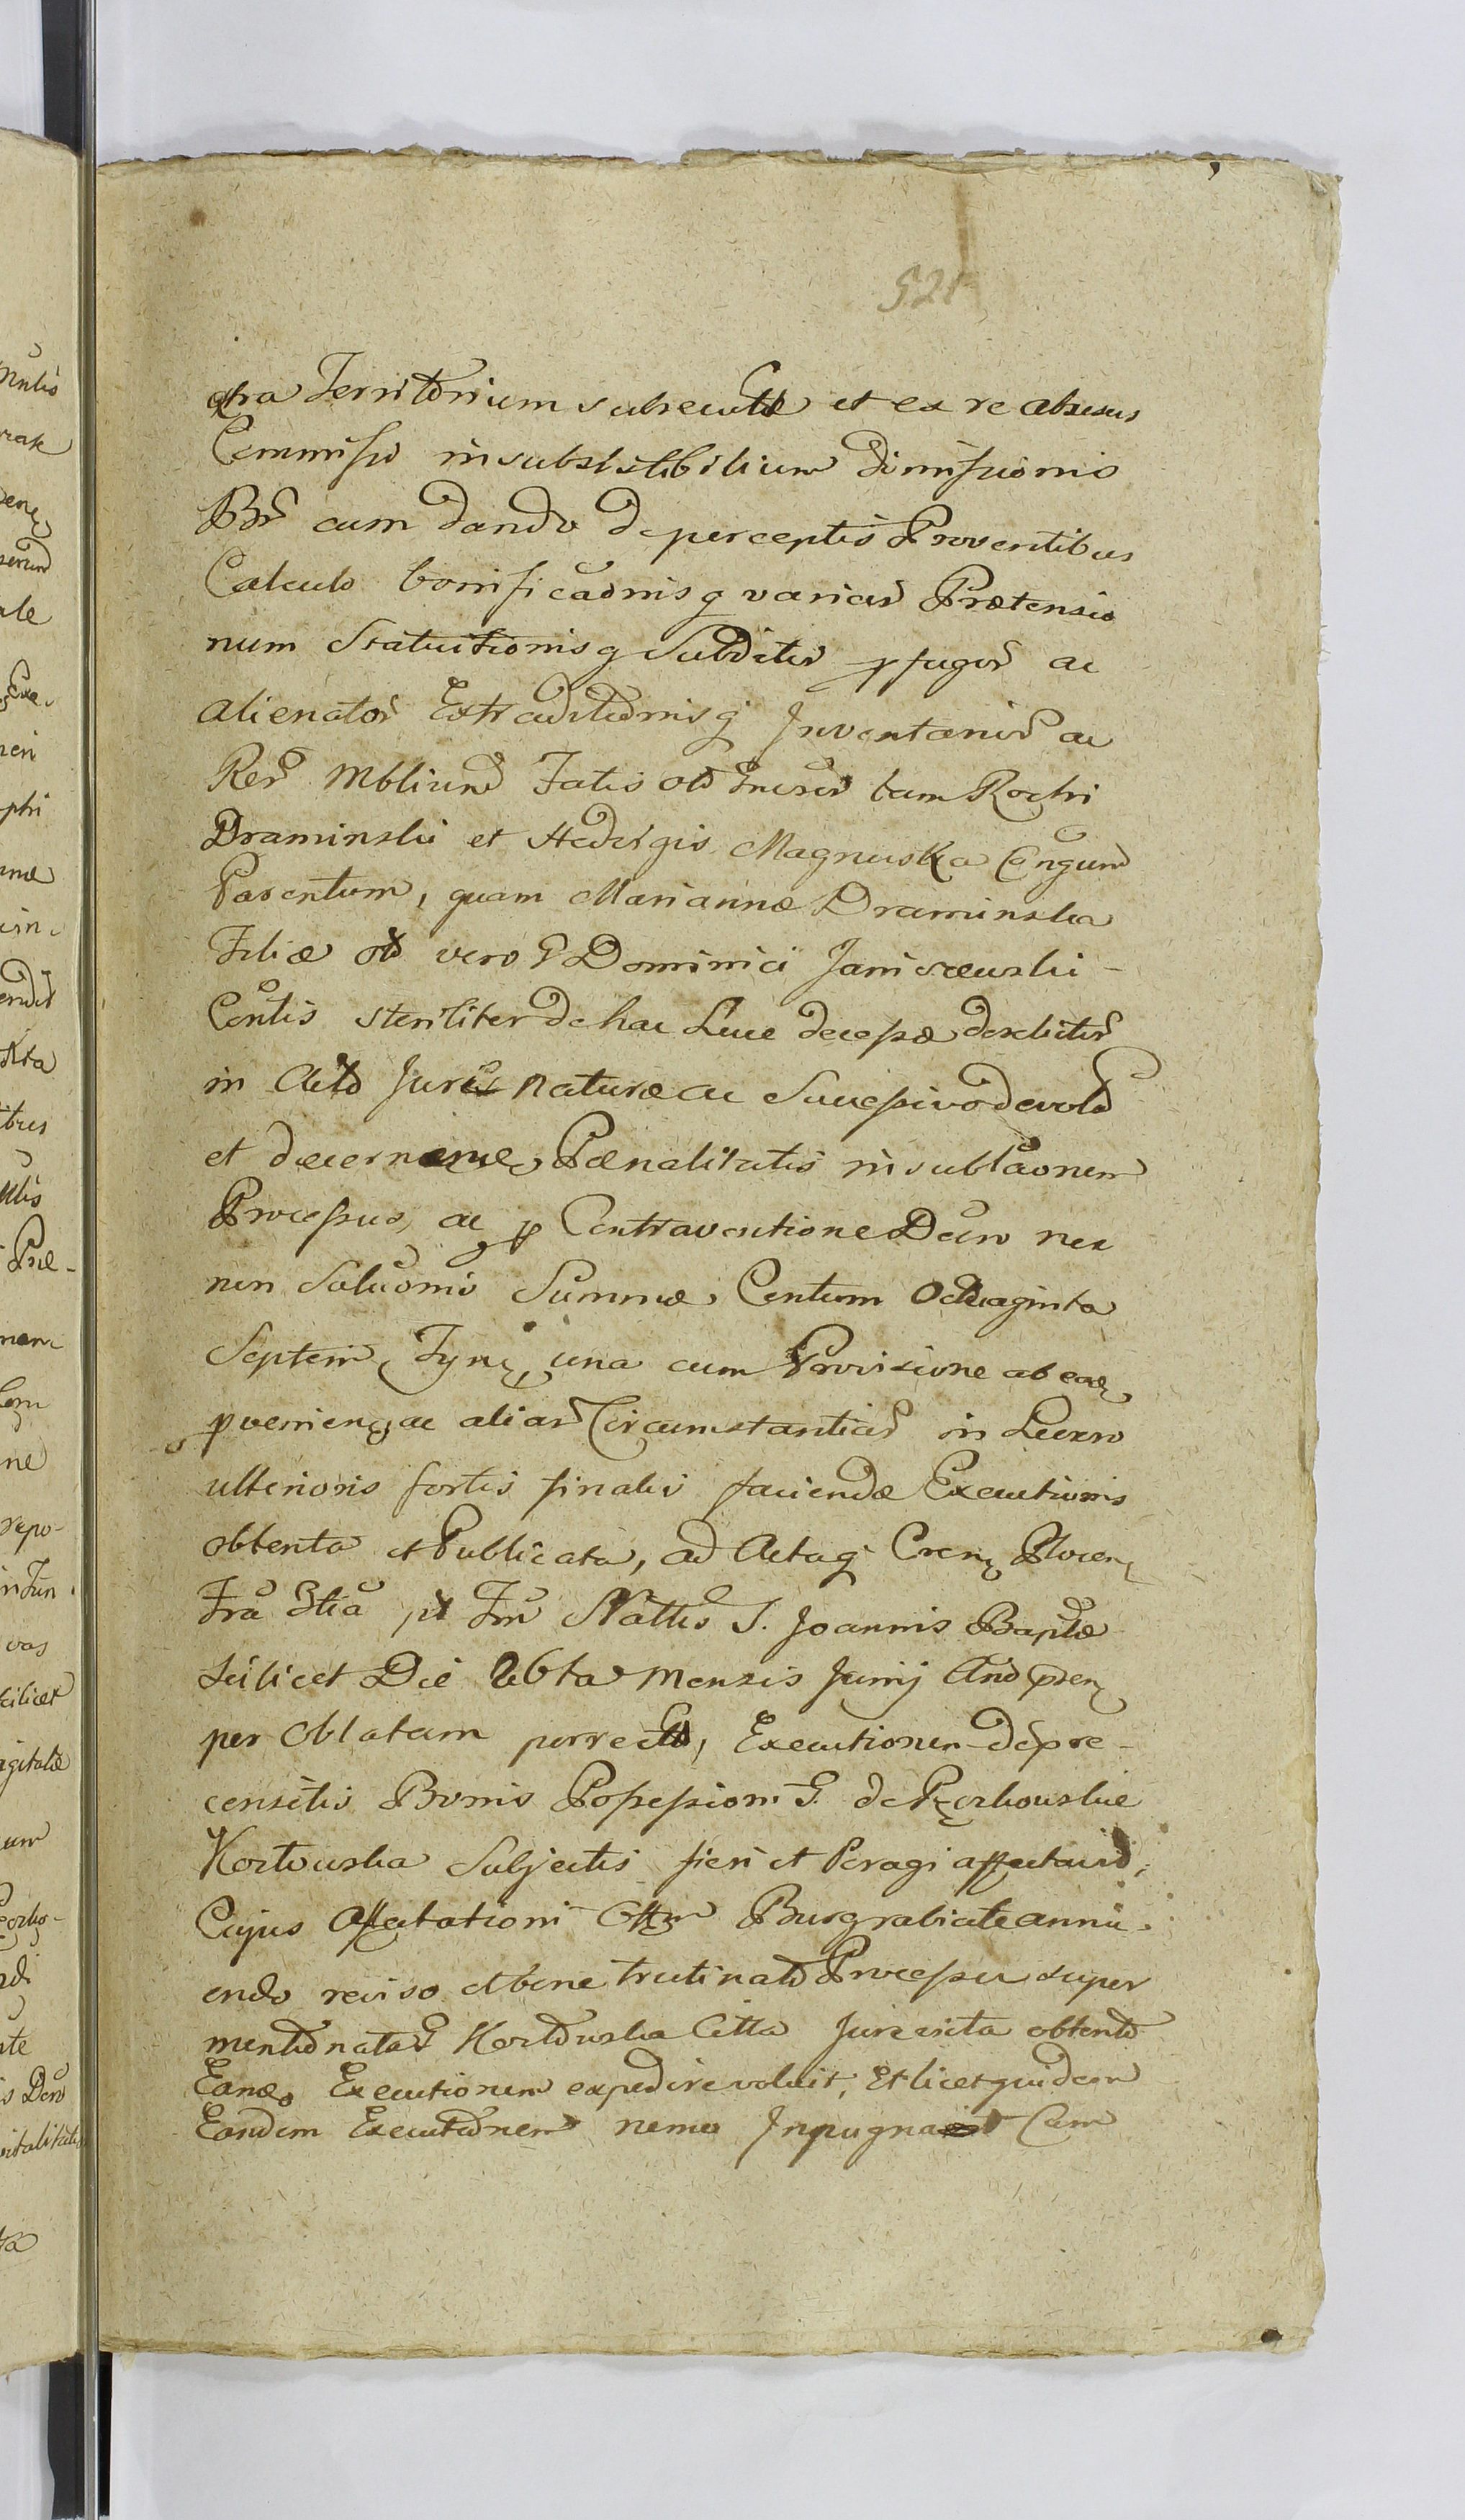 521
qtra Territorium subsecutæ et ex re abusus
Commissio insubsistibilium dimissionis
Br̃ cum dando de perceptis Proventibus
Calculo bonificaõnisq variar̃ Prætensio
num Statuitionisq Subditor̃ pfugor̃ ac
alienator̃ Extraditionisq Inventarior̃ ac
Rer̃ Mblium Fatis olim tam Rochi
Draminski et Hedvigis Magnuska Cõngum
Parentum, quam Mariannæ Draminska
Filiæ olim vero G Dominici Janiszewski -
Cõntis steriliter de hac Luce decessæ derelictor̃
in Acto Juris naturæ ac Successivo devolõ
et decernenæ Pænalitatis in sublaõnem
Processus ac p Contraventione Decro nec
non Soluõnis Summæ Centum Octuaginta
Septem Tynf, una cum Provisione ab eaȩ
pvenienȩ ac aliar̃ Circumstantiar̃ in Decro
ulterioris fortis finalis faciendæ Executionis
obtenta et Publicata, ad Actaq Crenȩ Plocenȩ
Fra 3tia pt Fm Nattis S. Joannis Baptæ
scilicet Die 26ta Mensis Junij Anõ prænȩ
per Oblatam porrecta, Executionem de præ-
censitis Bonis Possessioni G. de
Kortowska Subjectis fieri et Peragi affectavit;
Cujus Affectationi Offm Burgrabiale annu-
endo reviso et bene trutinato Processu super
mentionata G Kortowska Citta Jurevicta obtento
Eanȩ Executionem expedire voluit; Et licet quidem
Eandem Executionem nemo Inpugnavit Cum